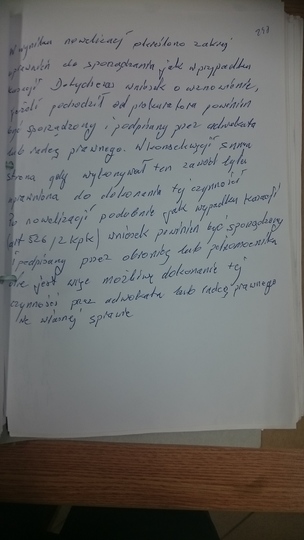 241
W wyniku nowelizacji określono zakres
uprawnień do sporządzania jak w przypadku
kasacji. Dotychczas wniosek o wznowienie,
jeżeli pochodził od prokuratora powinien
być sporządzony i podpisany przez adwokata
lub radcę prawnego. W konsekwencji sama
strona gdy wykonywał ten zawód była
uprawniona do dokonania tej czynności
Po nowelizacji podobnie jak wypadku kasacji
art 526 § 2 kpk) wniosek powinien być sporządzony
i podpisany przez obrońcę lub pełnomocnika
nie jest więc możliwe dokonanie tej
czynności przez adwokata lub radcę prawnego
we własnej sprawie